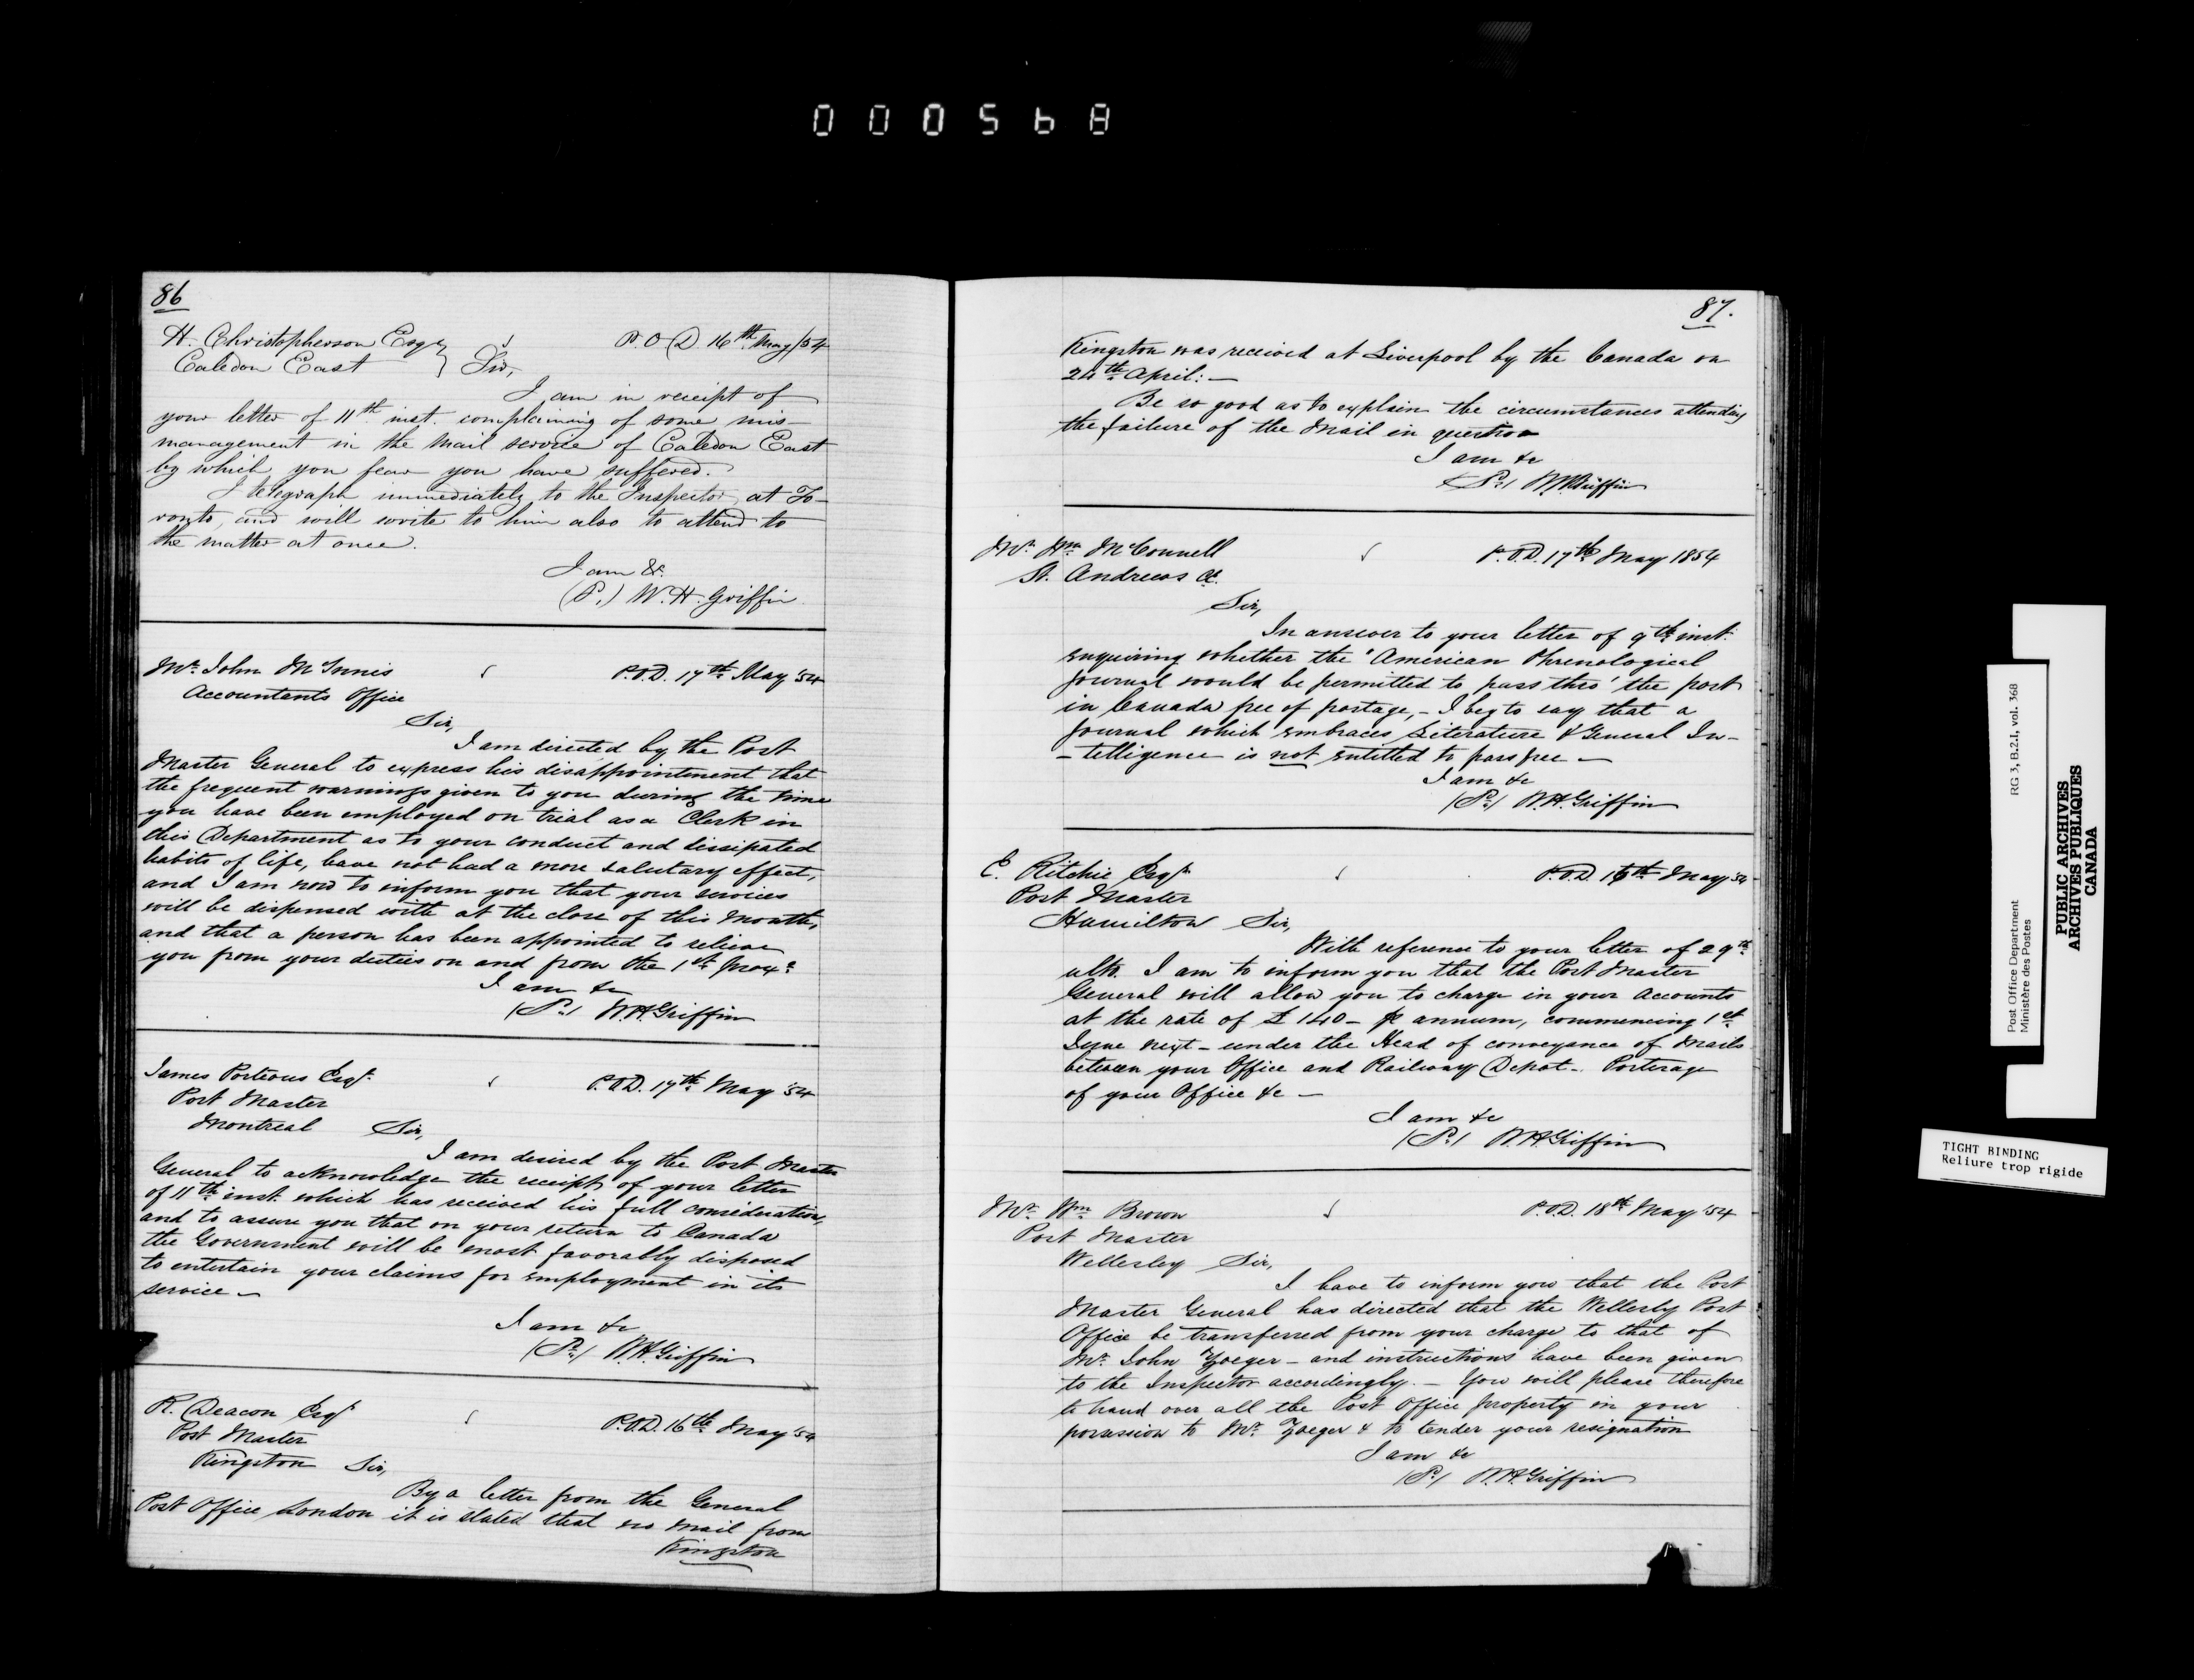 000568
86
H. Christopherson Esq
P.O.D 16th May/54
Caledon East } Sir,
I am in receipt of
your letter of 11th inst. complaining of some mis-
management in the Mail service of Caledon East
by which you fear you have suffered.
I telegraph immediately to the Inspector at To-
ronto, and will write to him also to attend to
the matter at once.
I am &c.
(P.) W. H. Griffin
Mr. John McInnis
P.O.D. 17th May '54
Accountants Office
Sir,
I am directed by the Post
Master General to express his disappointment that
the frequent warnings given to you during the time
you have been employed on trial as a Clerk in
this Department as to your conduct and dissipated
habits of life, have not had a more salutary effect,
and I am now to inform you that your services
will be dispensed with at the close of this month,
and that a person has been appointed to relieve
you from your duties on and from the 1st prox.
I am &c
W.H. Griffin
James Porteous Esqr.
P.O.D. 17th May '54
Post Master
Montreal Sir,
I am desired by the Post Master
General to acknowledge the receipt of your letter
of 11th inst. which has received his full consideration,
and to assure you that on your return to Canada
the Government will be most favorably disposed
to entertain your claims for employment in its
service —
I am &c
W.H. Griffin
R. Deacon Esqr
P.O.D. 16th May '54
Post Master
Kingston Sir,
By a letter from the General
Post Office London it is stated that no mail from
Kingston
87.
Kingston was received at Liverpool by the Canada on
24th April: —
Be so good as to explain the circumstances attending
the failure of the Mail in question
I am &c
W.H. Griffin
Mr. Wm. McConnell
P.O.D. 17th May 1854
St. Andrews
Sir,
In answer to your letter of 9th inst.
enquiring whether the "American Phrenological
Journal would be permitted to pass thro' the post
in Canada free of postage, - I beg to say that a
Journal which embraces Literature & General In-
-telligence is not entitled to pass free —
I am &c
W.H. Griffin
E. Ritchie Esqr
P.O.D. 16th May '54
Post Master
Hamilton Sir,
With reference to your letter of 29th
ulto. I am to inform you that the Post Master
General will allow you to charge in your Accounts
at the rate of £140 - p annum, commencing 1st
June next - under the Head of conveyance of Mails
between your Office and Railway Depot - Porterage
of your Office &c —
I am &c
W.H. Griffin
Mr. Wm. Brown
P.O.D. 18th May '54
Post Master
Wellesley Sir,
I have to inform you that the Post
Master General has directed that the Wellesly Post
Office be transferred from your charge to that of
Mr. John Zoeger - and instructions have been given
to the Inspector accordingly. — You will please therefore
to hand over all the Post Office property in your
possession to Mr. Zoeger & to tender your resignation
I am &c
W.H. Griffin
Post Office Department RG 3, B.2.I, vol. 368
Ministère des Postes
PUBLIC ARCHIVES
ARCHIVES PUBLIQUES
CANADA
TIGHT BINDING
Reliure trop rigide